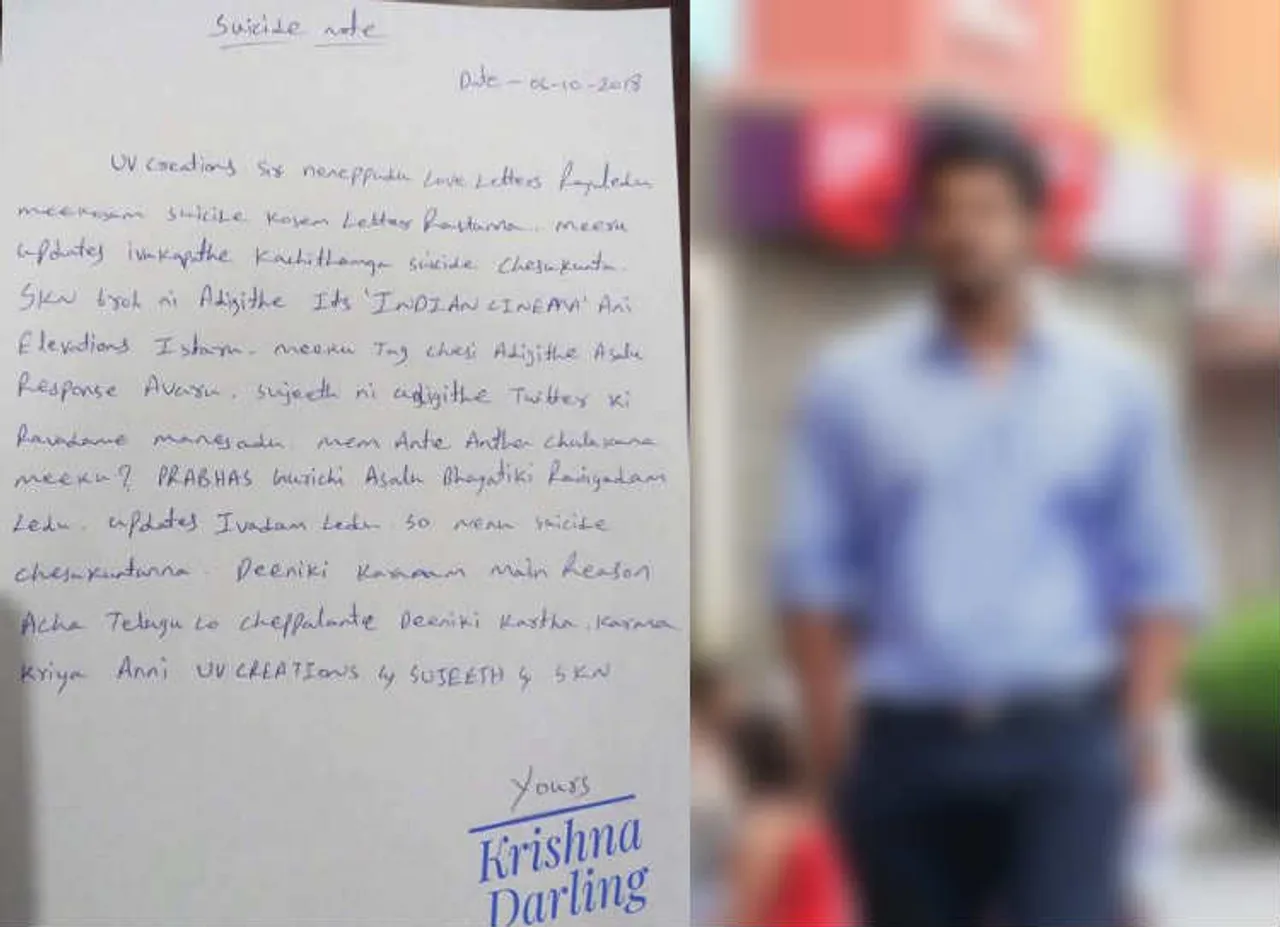 Suicide note
Date - 06-10-2018
UV Creations sir neneppudu Love Letters Rayaledu
meekosam suicide kosem Letter Rastunna. meeru
updates ivakapthe Kachithamga suicide chesukunta.
SKN broh ni Adigithe Its 'INDIAN CINEMA' Ani
Elevations Istaru. meeku Tag chesi Adigithe Asalu
Response Avaru. sujeeth ni adigithe Twitter ki
Ravadame manesadu. mem Ante Antha chulakana
meeku? PRABHAS Gurichi Asalu Bhayatiki
Ledu. updates Ivadam Ledu. so nenu suicide
chesukuntunna. Deeniki Karanam main Reason
Acha Telugu Lo cheppalante Deeniki Kartha, Karma
Kriya Anni UV CREATIONS & SUJEETH & SKN
Yours
Krishna
Darling